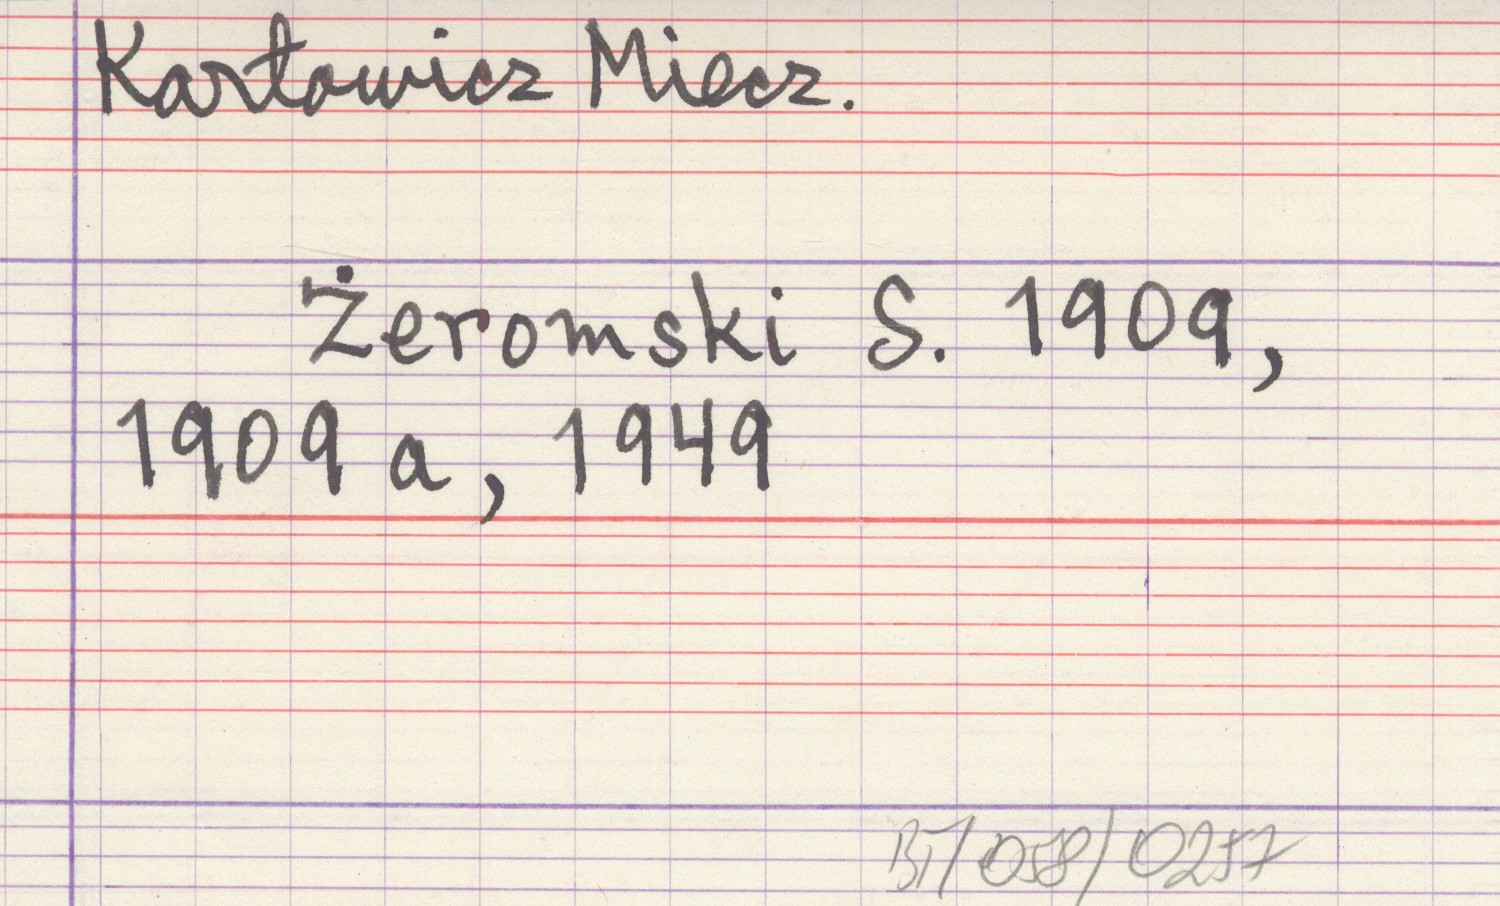 Karłowicz Miecz.
Żeromski S. 1909,
1909 a, 1949
BT/058/0257